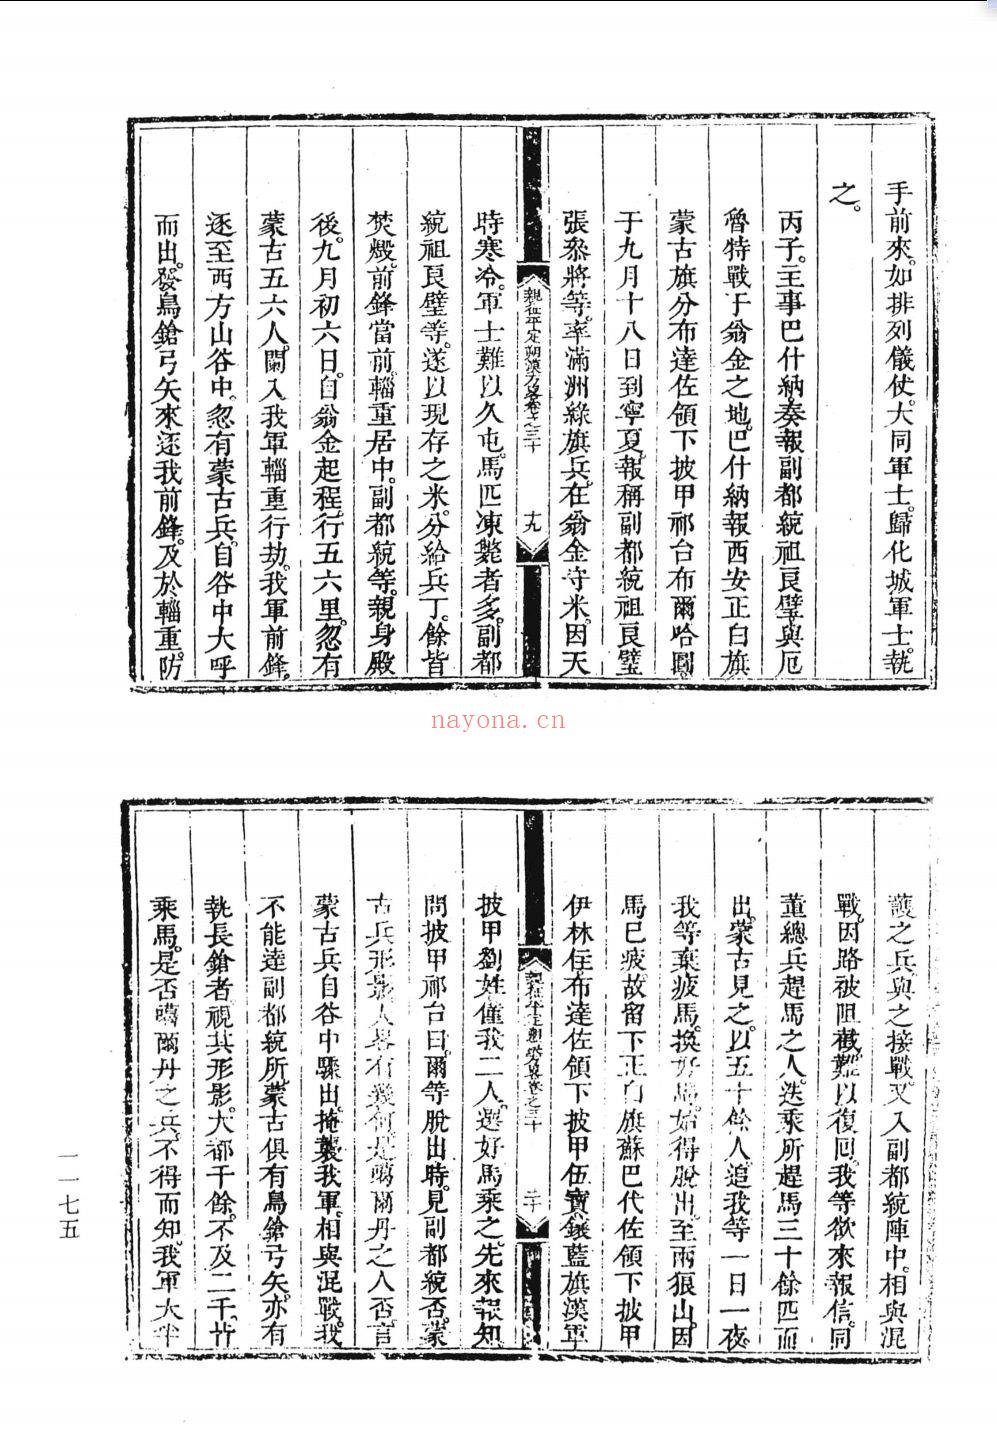 手前來。如排列儀仗。大同軍士。歸化城軍士。執
之。
丙子。主事巴什納。奏報副都統祖良璧與厄
魯特戰于翁金之地。巴什納報西安正白旗
蒙古旗分布達佐領下披甲祁台布爾哈圖。
于九月十八日到寧夏。報稱副都統祖良璧
張叅將等。率滿洲綠旗兵。在翁金守米。因天
親征平定朔漠方畧卷之三十
十九
時寒冷。軍士難以久屯。馬匹凍斃者多。副都
統祖良璧等。遂以現存之米。分給兵丁。餘皆
焚燬。前鋒當前。輜重居中。副都統等。親身殿
後。九月初六日。自翁金起程。行五六里。忽有
蒙古五六人。闌入我軍輜重行劫。我軍前鋒。
逐至西方山谷中。忽有蒙古兵。自谷中大呼
而出。發鳥鎗弓矢來逐我前鋒。及於輜重。防
nayona.cn
護之兵與之接戰。又入副都統陣中。相與混
戰。因路被阻截。難以復回。我等欲來報信。同
董總兵趕馬之人。迭乘所趕馬三十餘匹而
出。蒙古見之。以五十餘人。追我等一日一夜。
我等棄疲馬。換好馬。始得脫出。至兩狼山。因
馬已疲。故留下正白旗蘇巴代佐領下披甲
伊林住。布達佐領下披甲伍寶。鑲藍旗漢軍
親征平定朔漠方畧卷之三十
二十
披甲劉姓。僅我二人。選好馬乘之。先來報知
問披甲祁台曰。爾等脫出時。見副都統否。蒙
古兵形影人畧有幾何。是噶爾丹之人否。言
蒙古兵自谷中驟出。掩襲我軍。相與混戰。我
不能達副都統所。蒙古俱有鳥鎗弓矢。亦有
執長鎗者。視其形影。大都千餘。不及二千。竹
乘馬。是否噶爾丹之兵。不得而知。我軍大半
一一七五